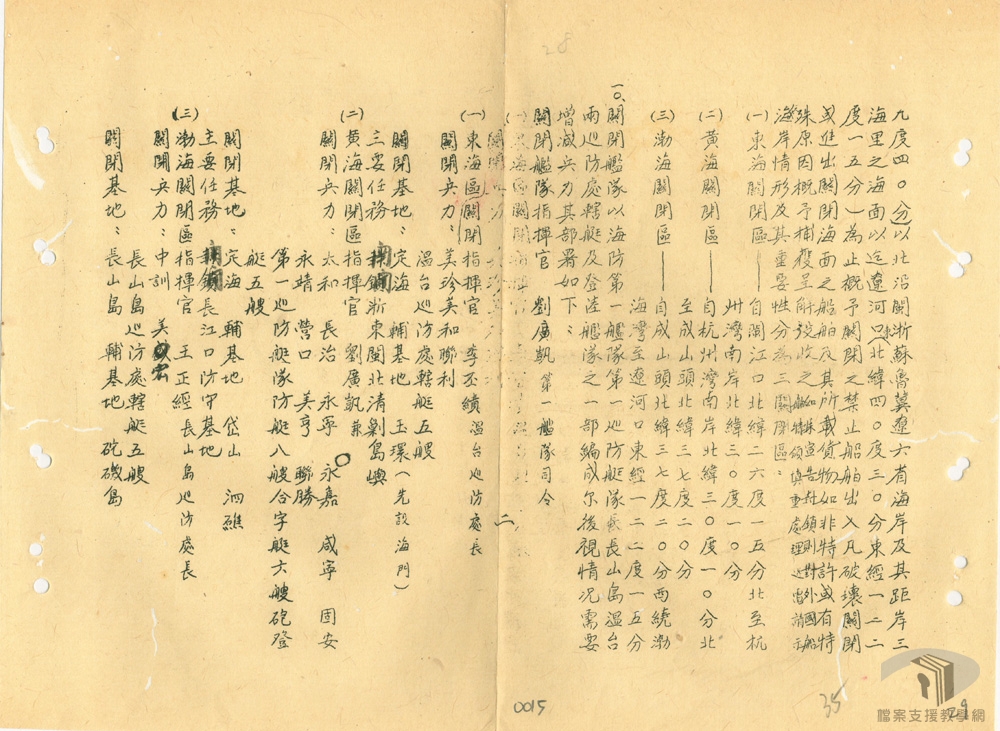 28
九度四〇分)以北沿閩浙蘇魯冀遼六省海岸及其距岸三
海里之海面以迄遼河口(北緯四〇度三〇分東經一二二
度一五分)為止概予關閉之禁止船舶出入凡破壞關閉
或進出關閉海面之船舶及其所載貨物如非特許或有特
殊原因概予捕獲呈解投收之
海岸情形及其重要性分為三關閉區:
(一)東海關閉區——自閩江口北緯二六度一五分北至杭
州灣南岸北緯三〇度一〇分
(二)黃海關閉區——自杭州灣南岸北緯三〇度一〇分北
至成山頭北緯三七度二〇分
(三)渤海關閉區——自成山頭北緯三七度二〇分西繞渤
海灣至遼河口東經一二二度一五分
一〇、關閉艦隊以海防第一艦隊第一巡防艇隊長山島溫台
兩巡防處轄艇及登陸艦隊之一部編成尔後視情況需要
增減兵力其部署如下:
關閉艦隊指揮官 劉廣凱 第一艦隊司令
(一)東海區關閉指揮官 李丕績 溫台巡防處長
關閉兵力:美珍美和聯利
溫台巡防處轄艇五艘
關閉基地:定海 輔基地 玉環(先設海門)
主要任務:浙東閩北清剿島嶼
(二)黃海關閉區指揮官 劉廣凱兼
關閉兵力:太和 長治 永寧 永嘉 咸寧 固安
永靖 營口 美亨 聯勝
第一巡防艇隊防艇八艘合字艇六艘砲登
艇五艘
關閉基地:定海 輔基地 岱山 泗礁
主要任務:長江口防守基地
(三)渤海關閉區指揮官 王正經 長山島巡防處長
關閉兵力:中訓 美宏
長山島巡防處轄艇五艘
關閉基地:長山島 輔基地 砣磯島
二
0015
35
29
檔案支援教學網